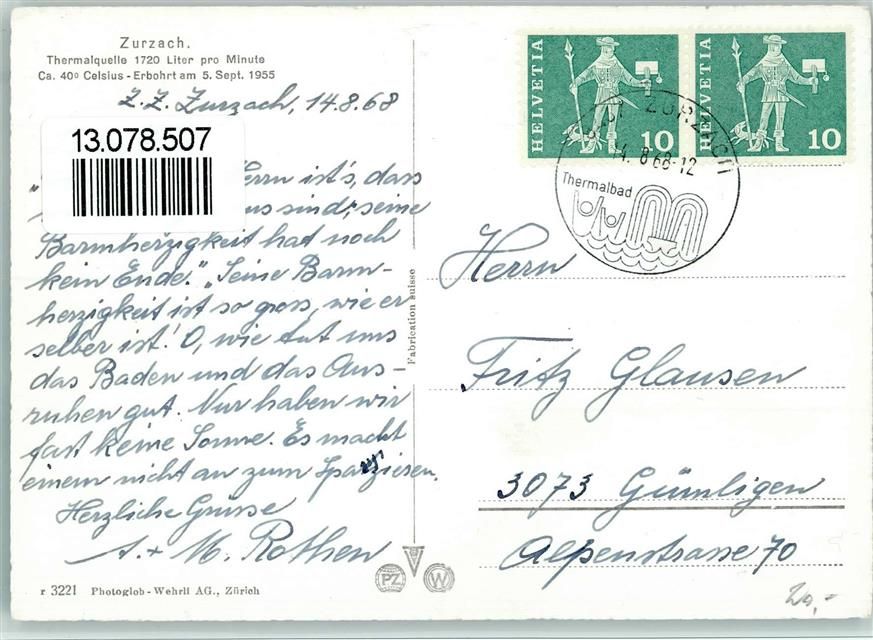 Zurzach.
Thermalquelle 1720 Liter pro Minute
Ca. 40⁰ Celsius - Erbohrt am 5. Sept. 1955
Z. Z. Zurzach, 14.8.68
13.078.507
Herrn ist's, dass
aus sind; seine
Barmherzigkeit hat noch
kein Ende." „Seine Barm-
herzigkeit ist so gross, wie er
selber ist! O, wie tut uns
das Baden und das Aus-
ruhen gut. Nur haben wir
fast keine Sonne. Es macht
einem nicht an zum Spazieren.
Herzliche Grüsse
A. + M. Rothen
r 3221 Photoglob - Wehrli AG., Zürich
Fabrication suisse
PZ
W
HELVETIA
10
HELVETIA
10
ZURZACH
14. 8 68-12
Thermalbad
Herrn
Fritz Glausen
3073 Gümligen
Alpenstrasse 70
20,-